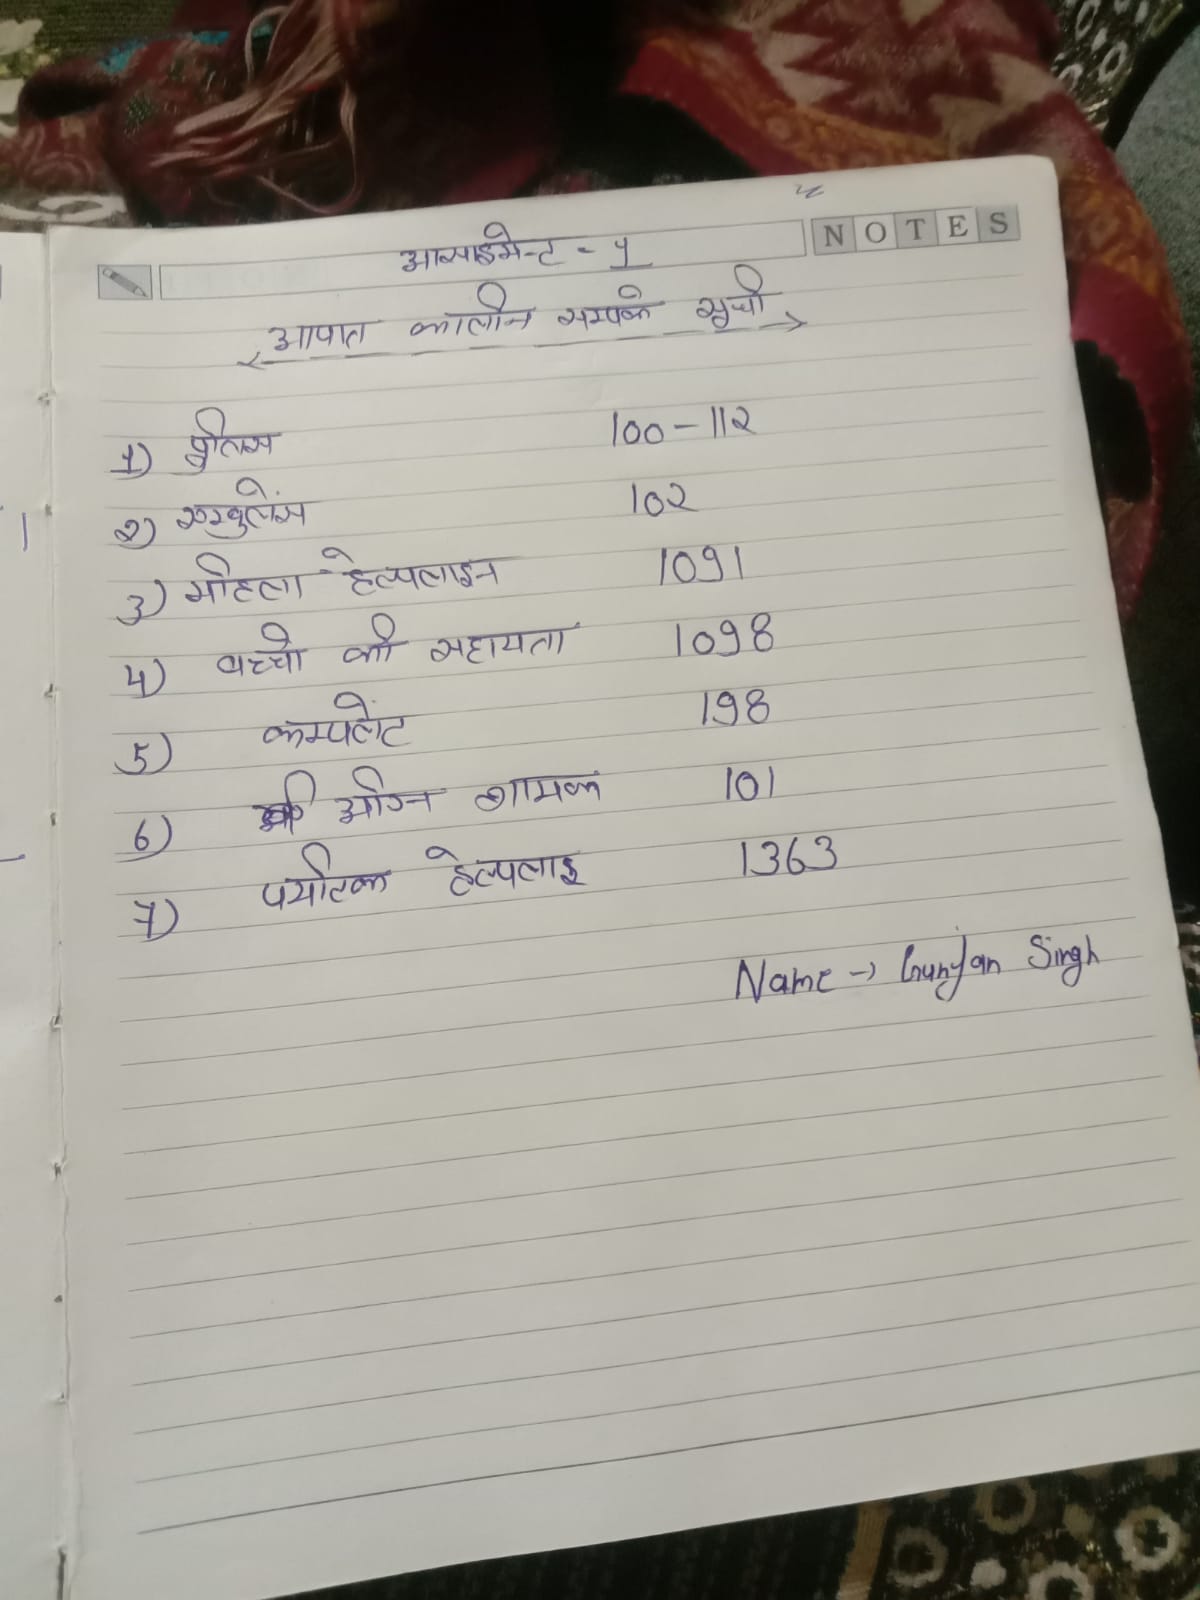 NOTES
आसाइमेन्ट - 1
आपात कालीन सम्पर्क सूची
1) पुलिस 100-112
2) एम्बुलेंस 102
3) महिला हेल्पलाइन 1091
4) बच्चो की सहायता 1098
5) कम्पलेंट 198
6) अग्नि शामक 101
7) पर्यटक हेल्पलाइ 1363
Name → Gunjan Singh